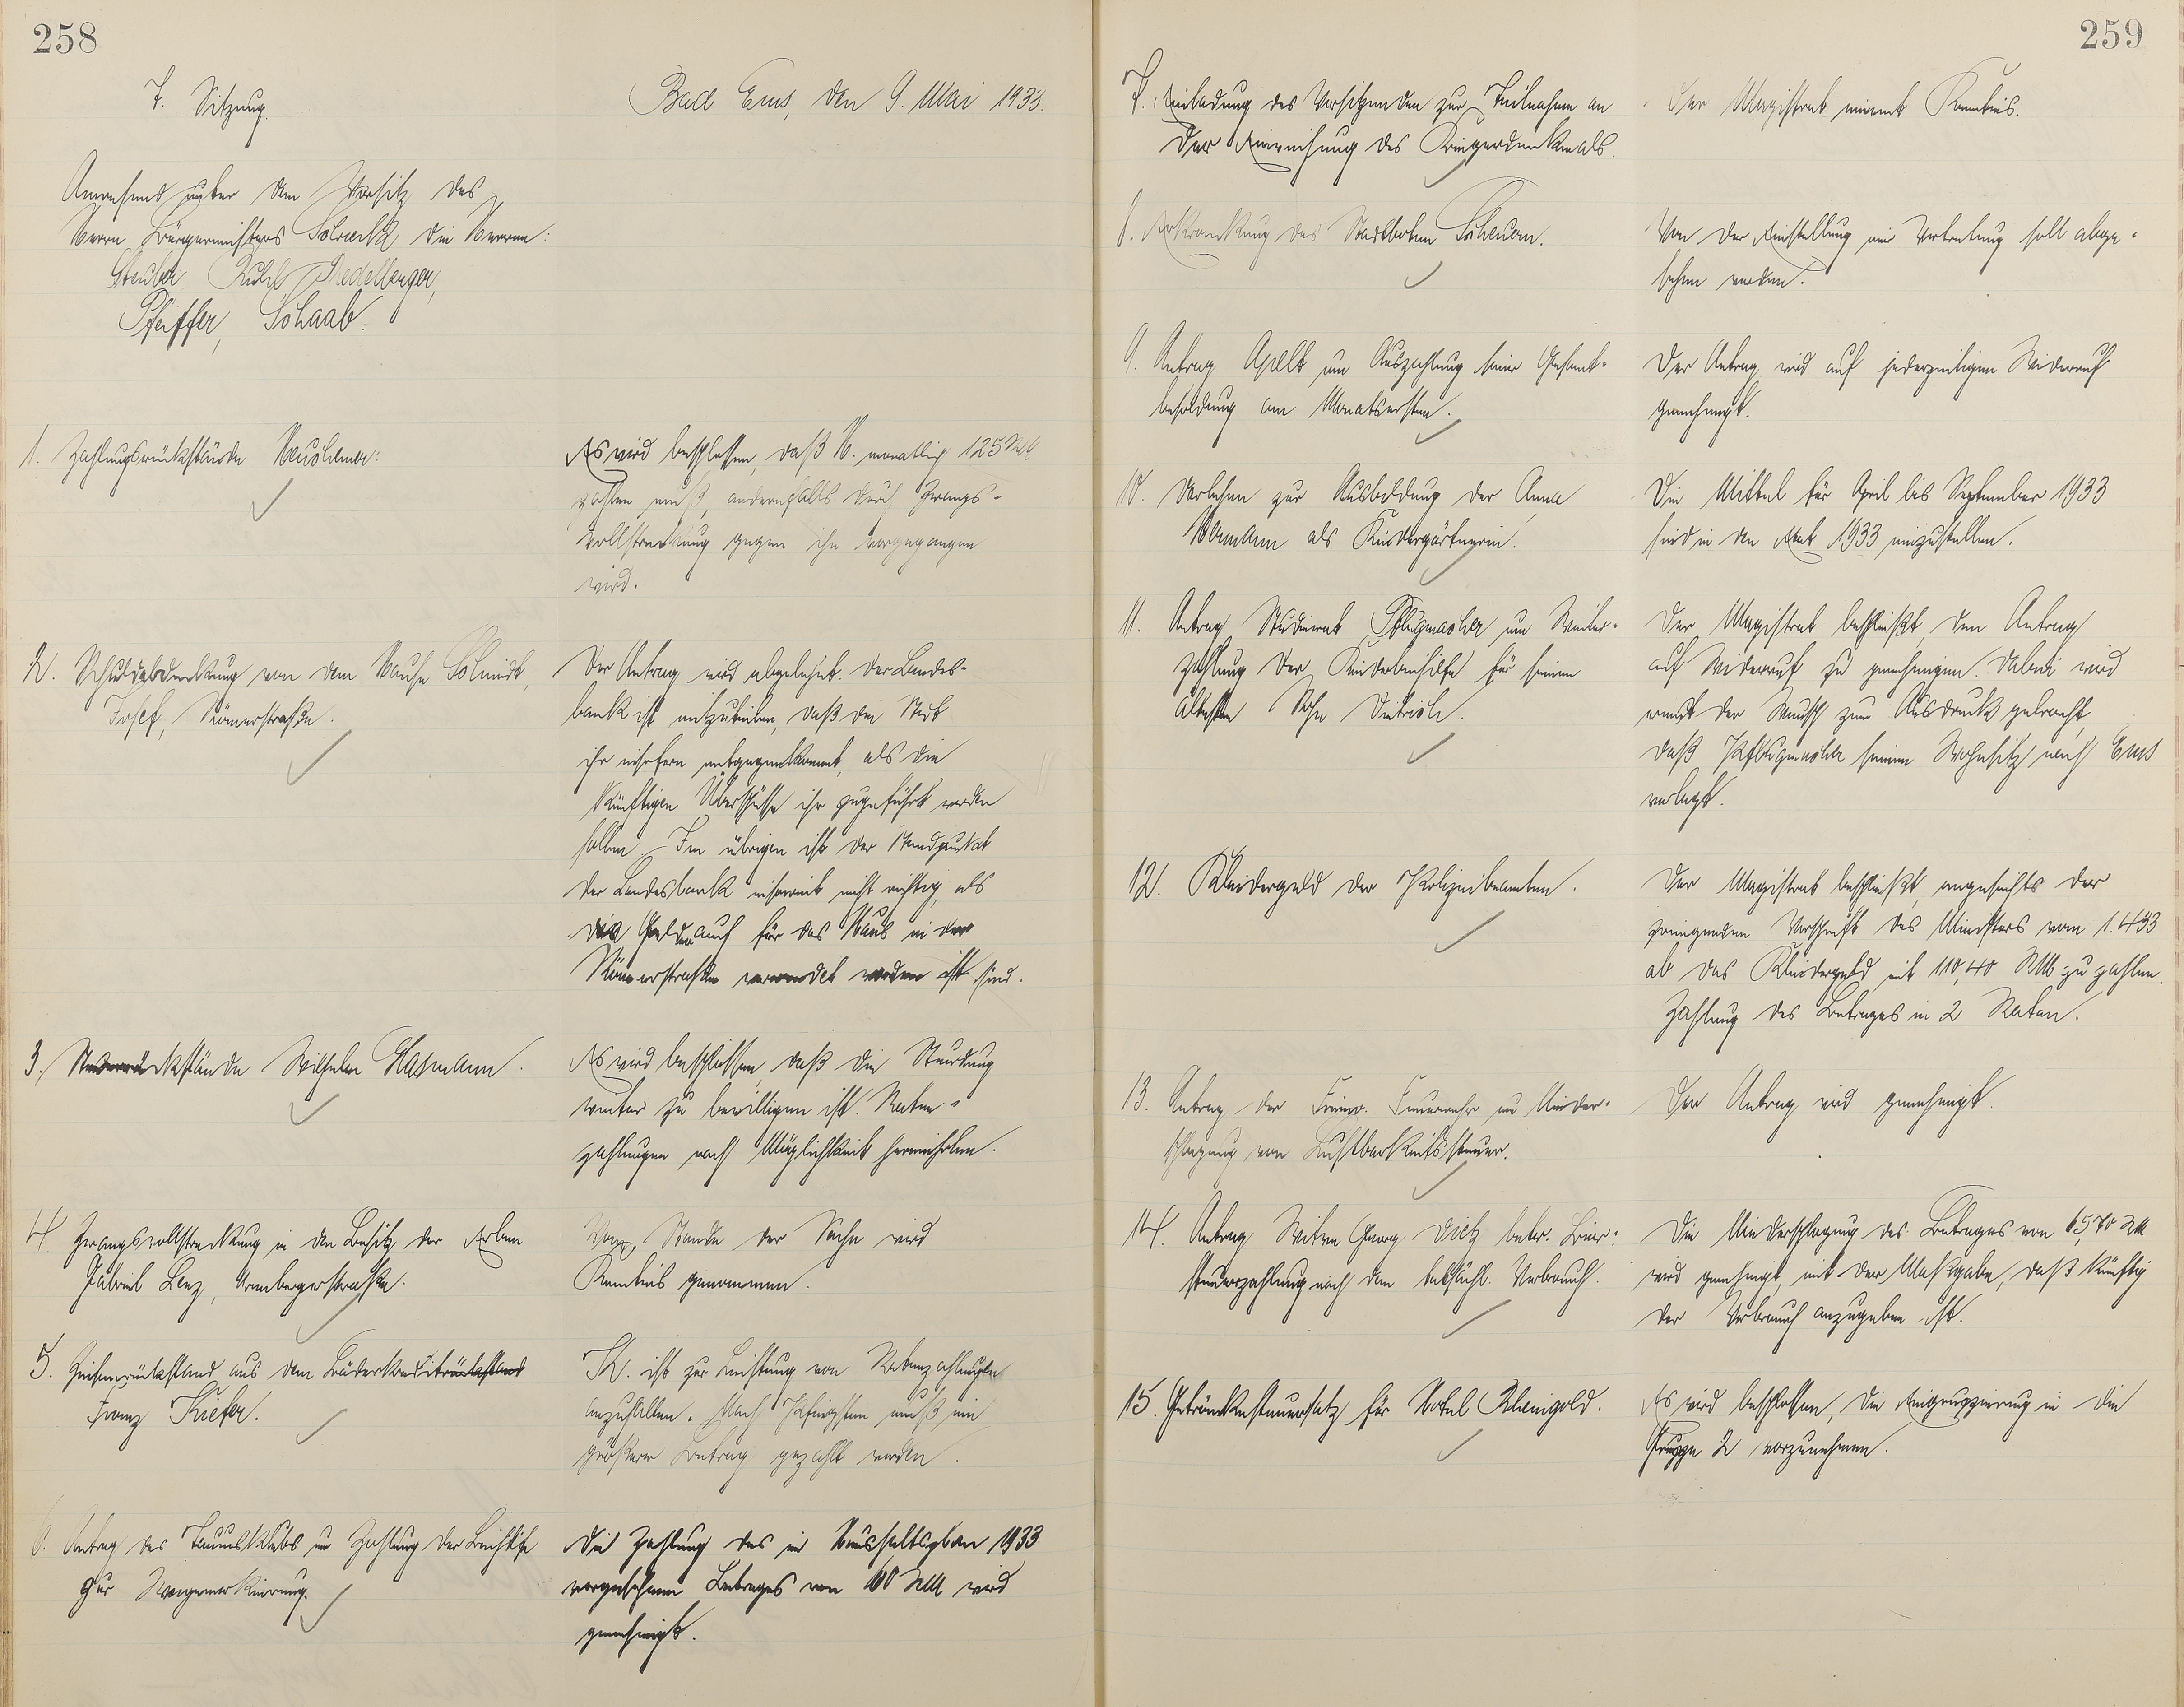 258
7. Sitzung.
Bad Ems, den 9. Mai 1933.
Anwesend unter dem Vorsitz des
Herrn Bürgermeisters Schrenk die Herren:
Stemler
Pfeiffer, Schaab.
1. Zahlungsrückstände
Es wird beschlossen, daß H. monatlich 125 RM
zahlen muß, andernfalls durch Zwangs-
vollstreckung gegen ihn vorgegangen
wird.
2. von dem Hause Schmidt,
Josef, Römerstraße.
Der Antrag wird abgelehnt. Der Landes-
bank ist mitzuteilen, daß die Stadt
ihr insofern entgegenkommt, als die
künftigen Überschüsse ihr zugeführt werden
sollen. Im übrigen ist der Standpunkt
der Landesbank insoweit nicht richtig, als
die Gelder auch für das Haus in der
Römerstraße verwendet worden ist sind.
3. Steuerrückstände Wilhelm Hasmann.
Es wird beschlossen, daß die Stundung
weiter zu bewilligen ist. Raten-
zahlungen nach Möglichkeit hereinholen.
4. Zwangsvollstreckung in den Besitz der Erben
Gabriel Lenz, Arenbergerstraße.
Vom Stande der Sache wird
Kenntnis genommen.
5. Zinsenrückstand aus dem Bäderkreditrückstand
Franz Kiefer.
K. ist zur Leistung von Ratenzahlungen
anzuhalten. Nach Pfingsten muß ein
größerer Betrag gezahlt werden.
6. Antrag des Taunusklubs um Zahlung der Beihilfe
zur Wegemarkierung.
Die Zahlung des im Haushaltsplan 1933
vorgesehenen Betrages von 60 RM wird
genehmigt.
259
7. Einladung des Vorsitzenden zur Teilnahme an
der Einweihung des Kriegerdenkmals.
Der Magistrat nimmt Kenntnis.
8. Erkrankung des Stadtboten Scheuern.
Von der Einstellung einer Vertretung soll abge-
sehen werden.
9. Antrag Apelt um Auszahlung seiner Gesamt-
besoldung am Monatsersten.
Der Antrag wird auf jederzeitigen Widerruf
genehmigt.
10. Darlehen zur Ausbildung der Anna
als Kindergärtnerin.
Die Mittel für April bis September 1933
sind in den Etat 1933 einzustellen.
11. Antrag Studienrat Pflugmacher um Weiter-
zahlung der Kinderbeihilfe für seinen
ältesten Sohn Dietrich.
Der Magistrat beschließt den Antrag
auf Widerruf zu genehmigen. Dabei wird
erneut der Wunsch zum Ausdruck gebracht,
daß Pflugmacher seinen Wohnsitz nach Ems
verlegt.
12. Kleidergeld der Polizeibeamten.
Der Magistrat beschließt, angesichts der
zwingenden Vorschrift des Ministers vom 1.4.33
ab das Kleidergeld mit 110,40 RM zu zahlen.
Zahlung des Betrages in 2 Raten.
13. Antrag der Freiw. Feuerwehr um Nieder-
schlagung von Lustbarkeitssteuer.
Der Antrag wird genehmigt.
14. Antrag Witwe Georg Dietz betr. Bier-
steuerzahlung nach dem tatsächl. Verbrauch.
Die Niederschlagung des Betrages von 65,70 RM
wird genehmigt, mit der Maßgabe, daß künftig
der Verbrauch anzugeben ist.
15. Getränkesteuersatz für Hotel Rheingold.
Es wird beschlossen, die Eingruppierung in die
Gruppe 2 vorzunehmen.